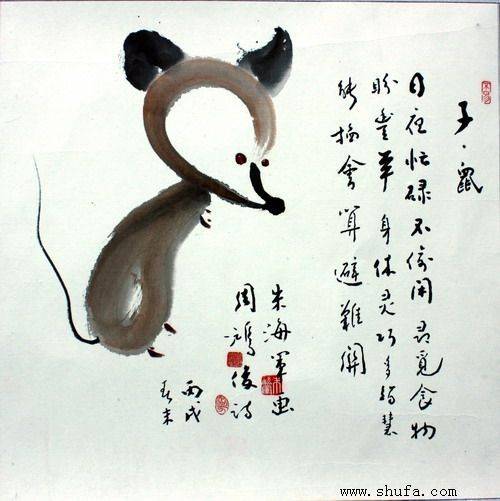 子·鼠
日夜忙碌不偷闲寻觅食物
盼豐年身体灵巧多智慧
能掐會算避難關
朱海軍画
周鴻俊詩
丙戌
春末
www.shufa.com